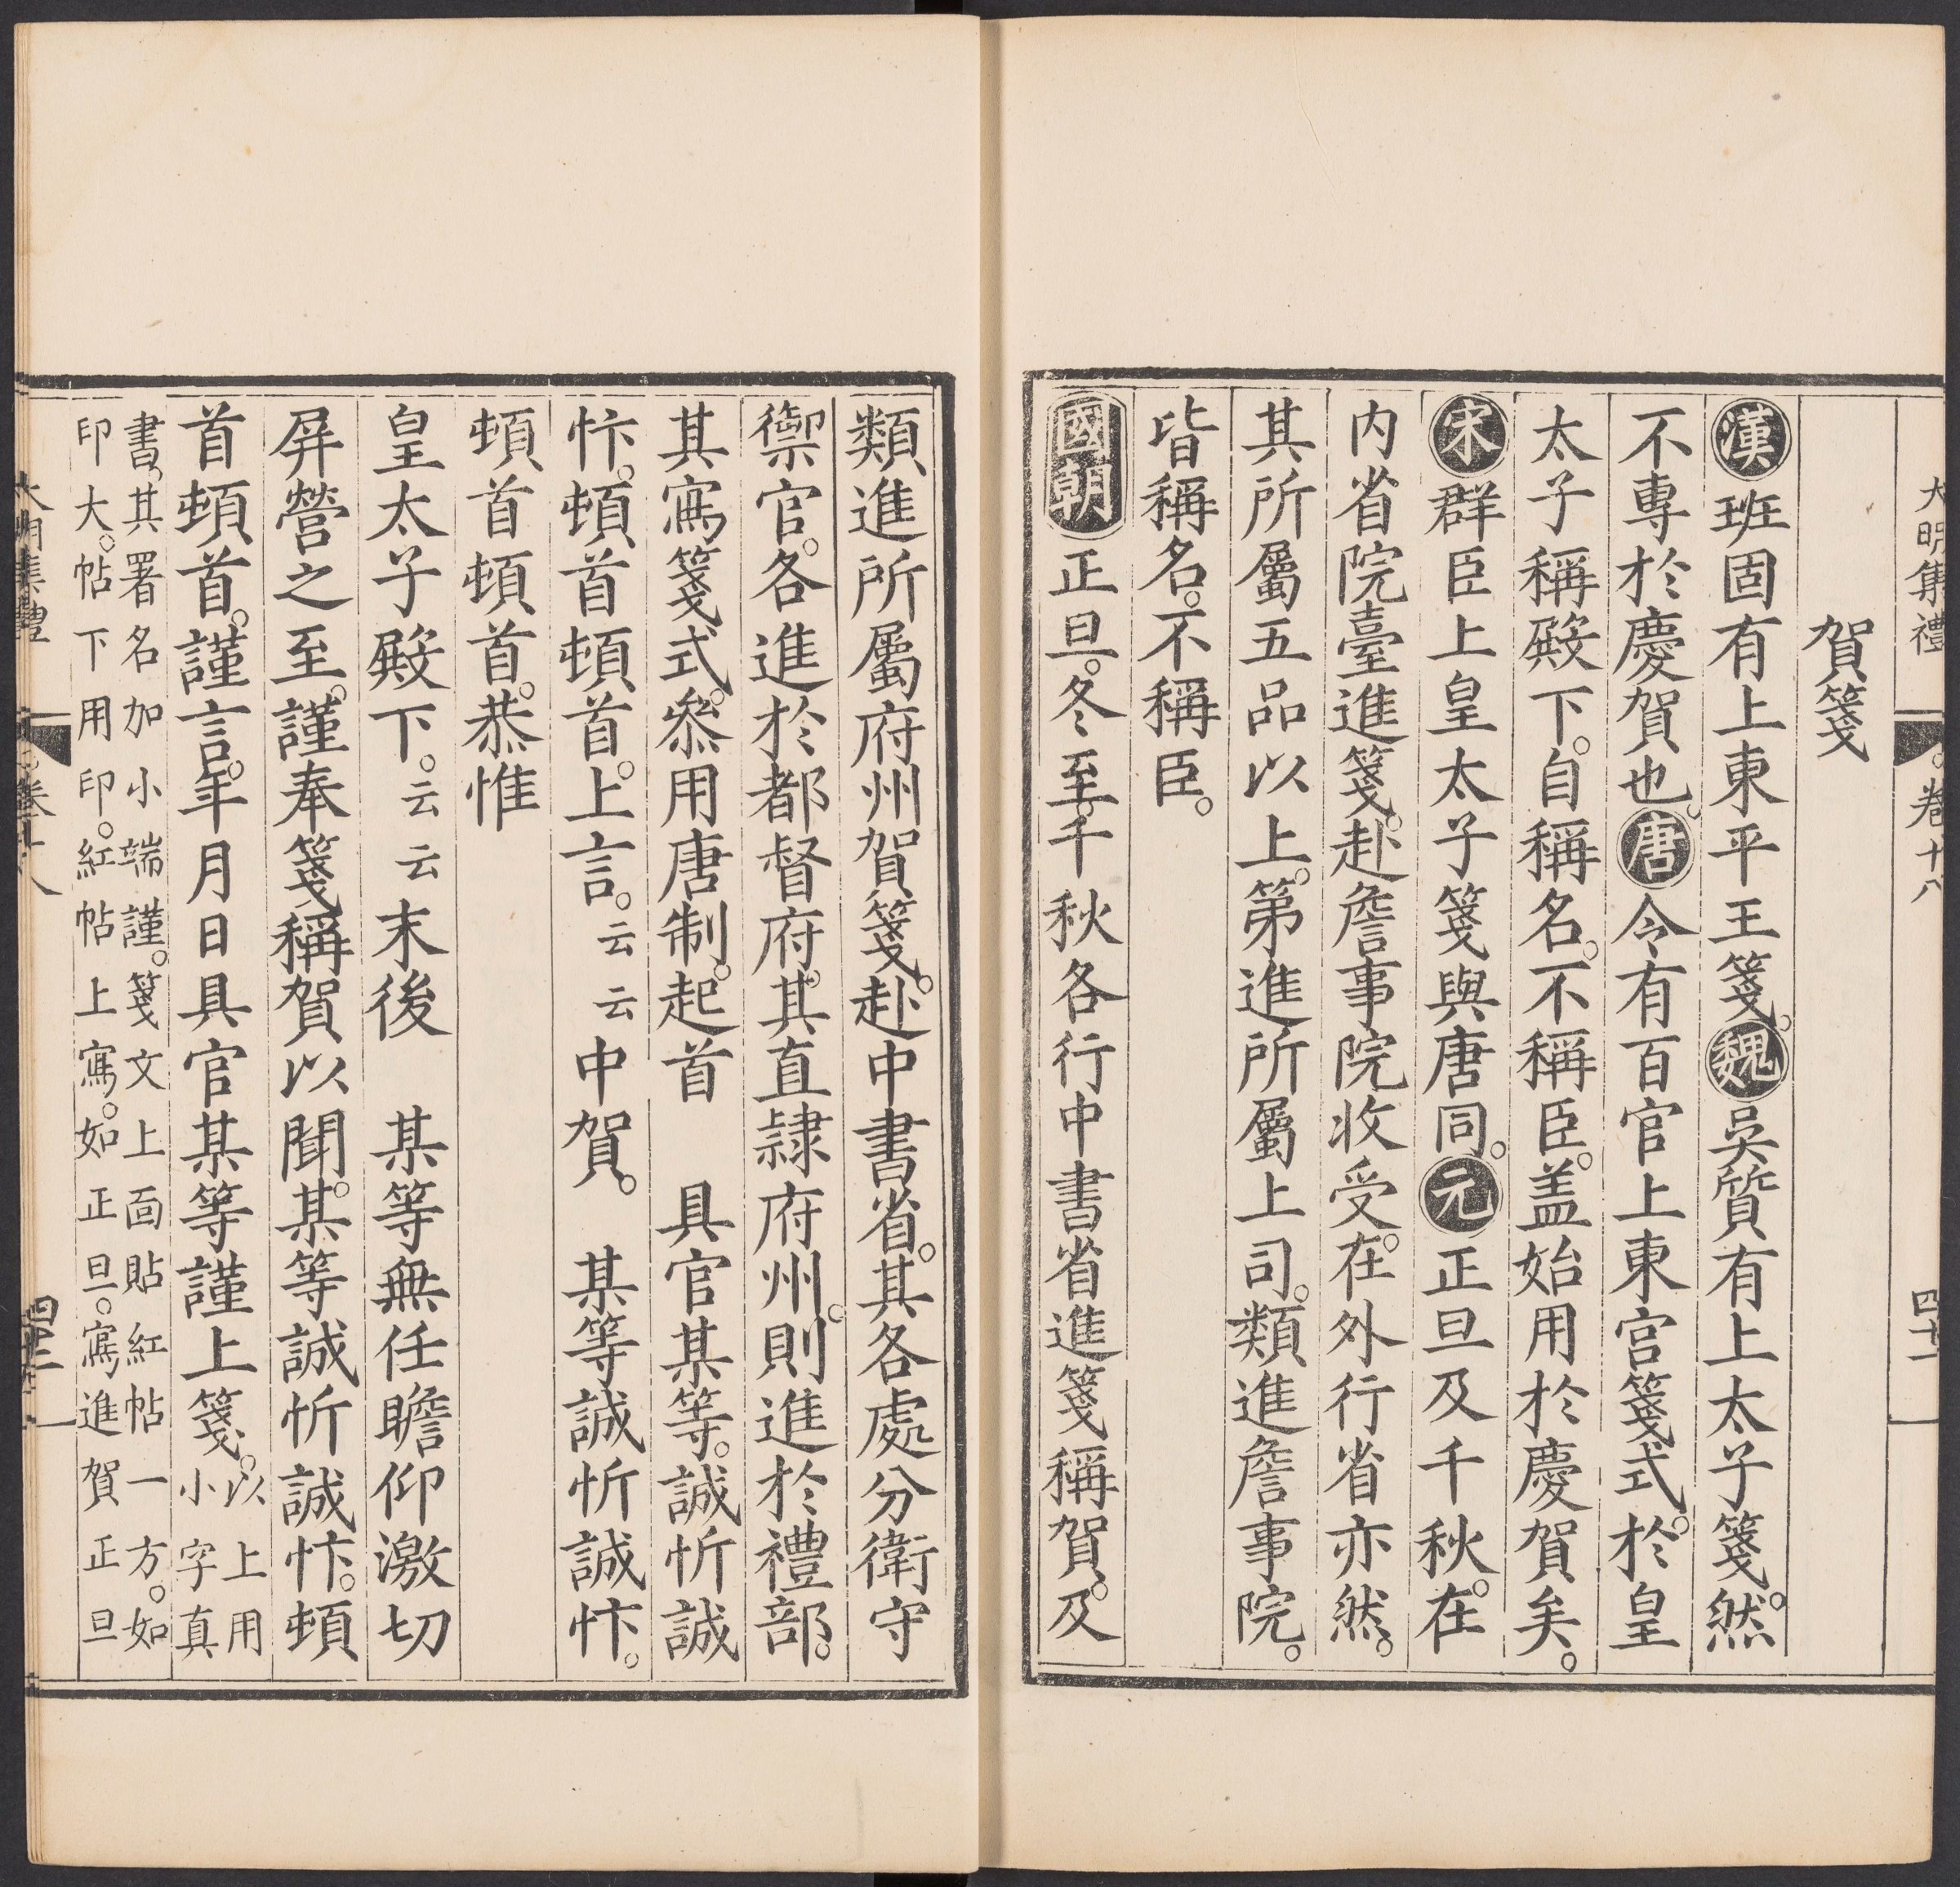 大明集禮 卷十八 四十一
賀箋
漢班固有上東平王箋。魏吳質有上太子箋。然
不專於慶賀也。唐令有百官上東宮箋式。於皇
太子稱殿下。自稱名。不稱臣。盖始用於慶賀矣。
宋群臣上皇太子箋與唐同。元正旦及千秋。在
内省院臺進箋。赴詹事院收受。在外行省亦然。
其所屬五品以上。第進所屬上司。類進詹事院。
皆稱名。不稱臣。
國朝正旦。冬至。千秋各行中書省進箋稱賀。及
類進所屬府州賀箋。赴中書省。其各處分衛守
禦官。各進於都督府。其直隷府州。則進於禮部。
其寫箋式。叅用唐制。起首 具官某等。誠忻誠
忭。頓首頓首。上言。云云中賀。 某等誠忻誠忭。
頓首頓首。恭惟
皇太子殿下。云云末後 某等無任瞻仰激切
屏營之至。謹奉箋稱賀以聞。某等誠忻誠忭。頓
首頓首。謹言。年月日具官某等謹上箋。以上用
小字真
書。其署名加小端謹。箋文上面貼紅帖一方。如
印大。帖下用印。紅帖上寫。如正旦。寫進賀正旦
大明集禮 卷十八